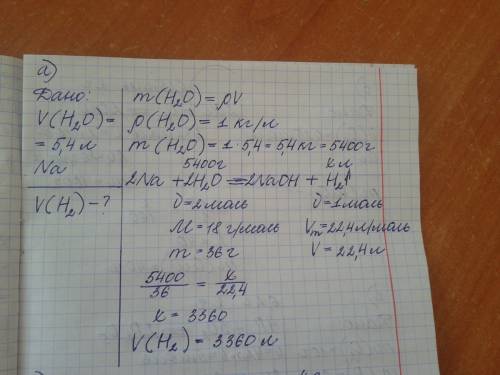 а)
Дано:
V(H₂O)=
= 5,4 л
Na
V(H₂) - ?
m(H₂O) = ρV
ρ(H₂O) = 1 кг/л
m(H₂O) = 1·5,4 = 5,4 кг = 5400 г
5400г х л
2Na + 2H₂O = 2NaOH + H₂↑
ν = 2 моль ν = 1 моль
M = 18 г/моль Vm = 22,4 л/моль
m = 36 г V = 22,4 л
5400/36 = x/22,4
x = 3360
V(H₂) = 3360 л